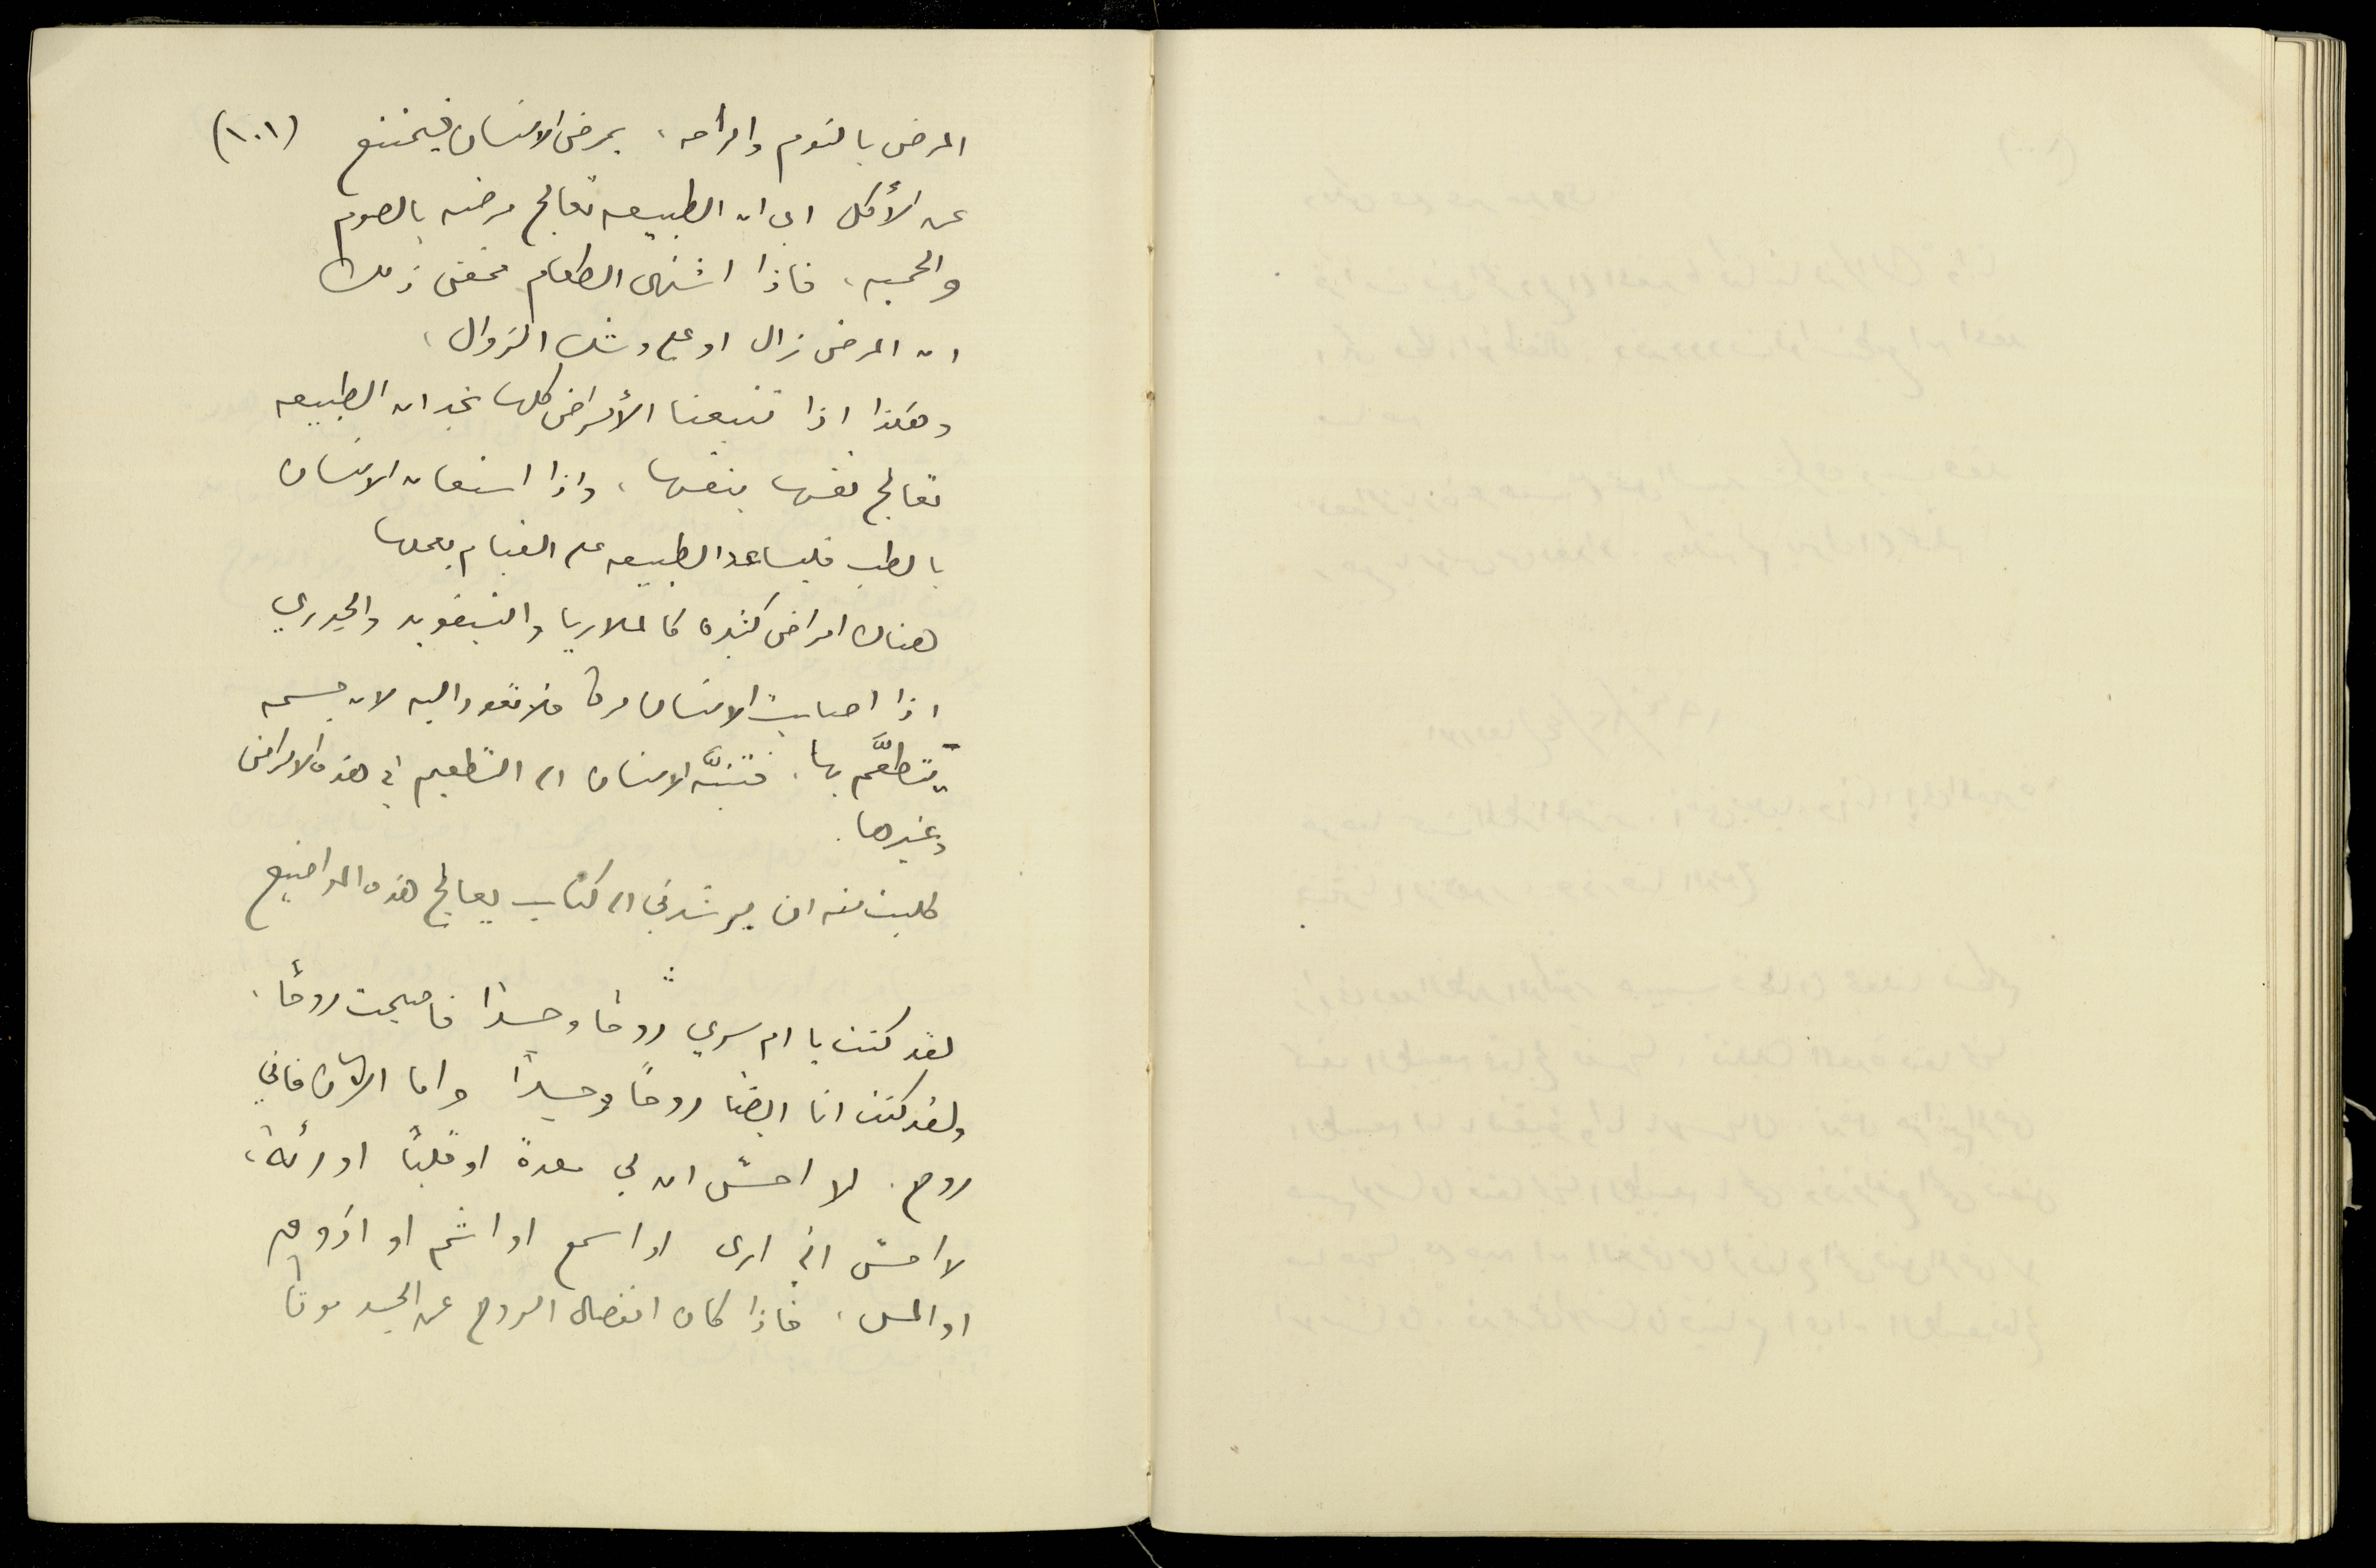 (١٠١)
المرض بالنوم والراحه، يمرض الانسان فيمتنع
عن الأكل اي ان الطبيعه تعالج مرضه بالصوم
والحميه، فاذا اشتهى الطعام فمعنى ذلك
ان المرض زال او على وشك الزوال،
وهكذا اذا تتبعنا الأمراض كلها نجد ان الطبيعه
تعالج نفسها بنفسها، واذا استعان الانسان
بالطب فليساعد الطبيعه على القيام بعملها
هناك امراض كثيره كالملاريا والتيفويد والجدري
اذا اصابت الانسان مرة فلا تعود اليه لان جسمه
يتطعَّم بها. فتنبَّه الانسان الى التطعيم في هذه الامراض
وغيرها.
طلبت منه ان يرشدني الى كتاب يعالج هذه المواضيع
لقد كنت يا ام سري روحًا وجسدًا فاصبحت روحًا،
ولقد كنت انا ايضا روحًا وجسدًا واما الآن فاني
روح. لا احسّ ان لي معدةً او قلبًا او رئة،
لا احسّ اني ارى او اسمع او اشم او اذوق
او المس، فاذا كان انفصال الروح عن الجسد موتًا